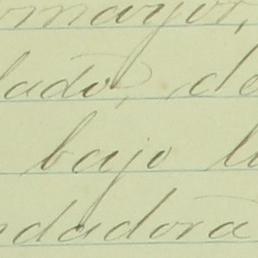 omayor,
lado, de
bajo l
ndadora